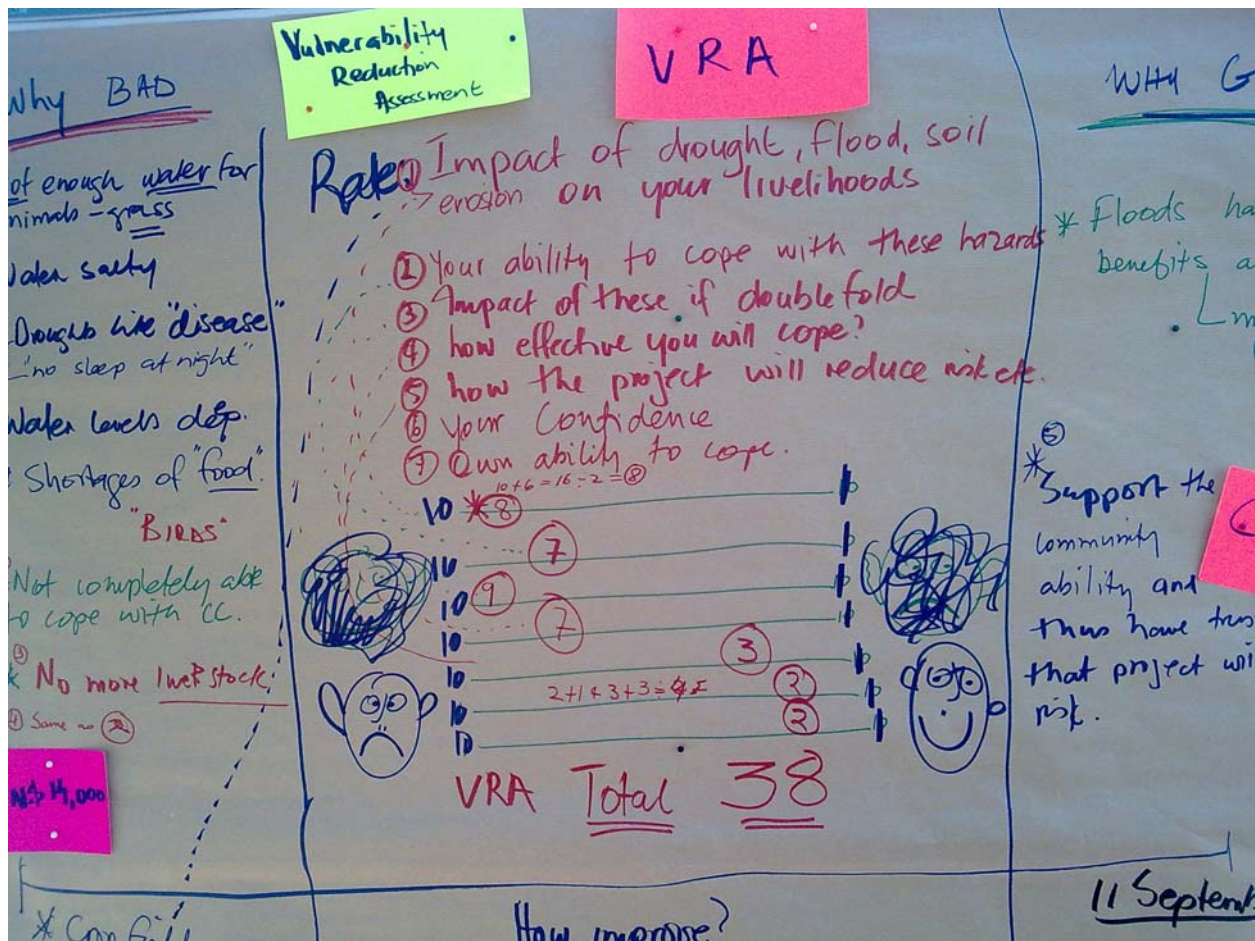 Vulnerability
Reduction
Assessment
VRA
Why BAD
of enough water for
nimals - grass
Water salty
Droughts like "disease"
"no sleep at night"
Water levels
Shortages of "food"
"BIRDS"
Not completely able
to cope with CC.
③
No more
④ Same as
N$ 14,000
Rate: ① Impact of drought, flood, soil
erosion on your livelihoods
② Your ability to cope with these hazards
③ Impact of these if double fold
④ how effective you will cope?
⑤ how the project will reduce risk etc.
⑥ your Confidence
⑦ Own ability to cope.
10 + 6 = 16 ÷ 2 = ⑧
10 * 8 1
10 7 1
10 9 1
10 7 1
10 3 1
10 2+1+3+3= 2 1
10 2 1
VRA Total 38
WHY G
* Floods ha
benefits a
⑤
* Support the
community
ability and
thus have trus
that project wil
risk.
How improve?
11 Septemb